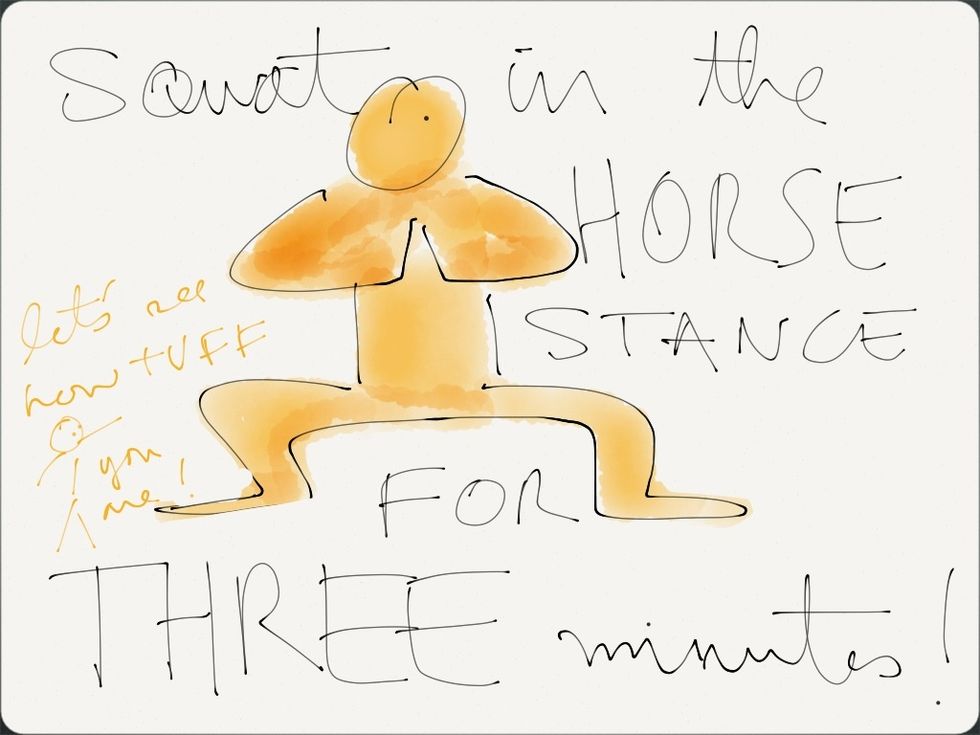 Squat in the
HORSE
STANCE
FOR
THREE minutes!
let's see
how TUFF
you
are!